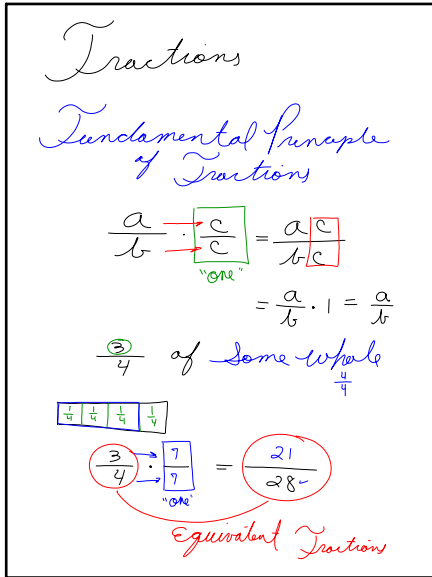 Fractions
Fundamental Principle
of Fractions
a/b · c/c = ac/bc
"one"
= a/b · 1 = a/b
3/4 of Some whole
4/4
1/4 1/4 1/4 1/4
3/4 · 7/7 = 21/28
"one"
Equivalent Fractions